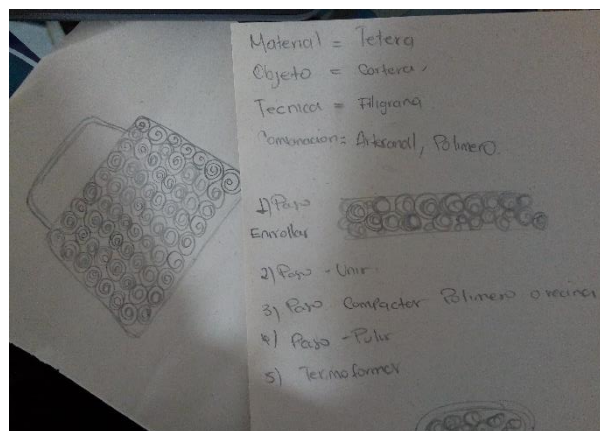 Material = Tetera
Objeto = Cartera
Tecnica = Filigrana
Combinacion = Artesanal, Polimero.
1) Paso
Enrollar
2) Paso - Unir
3) Paso Compactar Polimero o recina
4) Paso - Pulir
5) Termoformar